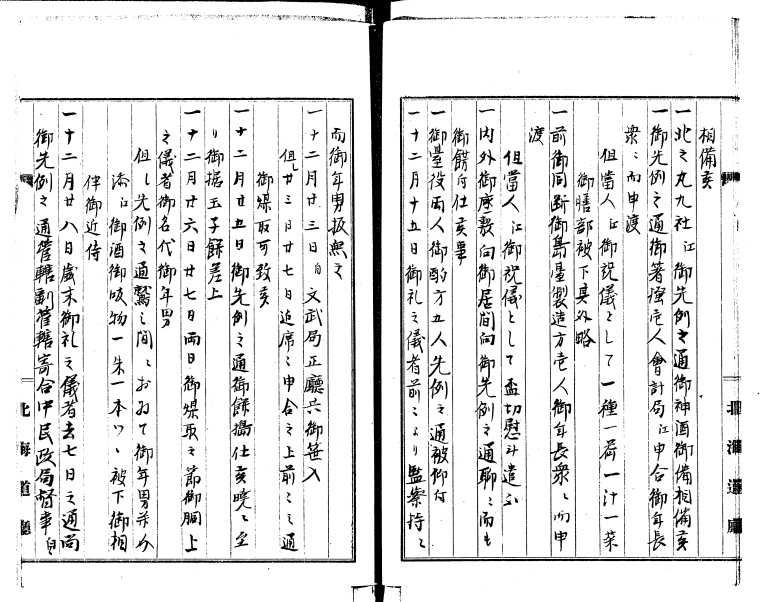 相備亥
一北之丸九社江御先例之通御神酒御備相備亥
一御先例之通御箸強壱人會計局江申合御年長
衆ニ而申渡
但當人江御祝儀として一種一荷一汁一菜
御膳部被下其外略
一前御同断御島臺製造方壱人御年長衆ニ而申
渡
但當人江御祝儀として盃切慰斗遣ス
一内外御座敷向御居間向御先例之通聊ニ而も
御餝付仕亥事
一御臺役両人御酌方五人先例之通被仰付
一十二月十五日御礼之儀者前ニより監察持ニ
而御年男扱無之
一十二月廿三日ゟ文武局正廳共御笹入
但シ廿三日廿七日迫席之申合之上前ニ之通
御煤取可致亥
一十二月廿五日御先例之通御餅搗仕亥暁ニ至
り御据玉子餅差上
一十二月廿六日廿七日両日御煤取之節御胴上
之儀者御名代御年男
但シ先例之通鷲之間ニおゐて御年男并外
添江御酒御吸物一朱一本ツヽ被下御相
伴御近侍
一十二月廿八日歳末御礼之儀者去七日之通尚
御先例之通管轄副管轄寄合中民政局督事自
北海道廳
北海道廳